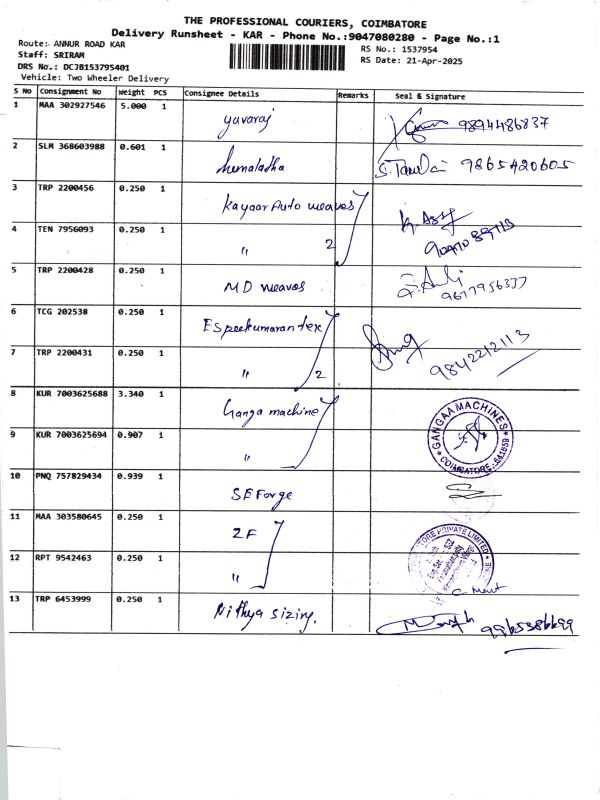 THE PROFESSIONAL COURIERS, COIMBATORE
Delivery Runsheet - KAR - Phone No.:9047080280 - Page No.:1
Route:- ANNUR ROAD KAR
RS No.: 1537954
Staff: SRIRAM
RS Date: 21-Apr-2025
DRS No.: DCJB153795401
Vehicle: Two Wheeler Delivery
S No Consignment No Weight PCS Consignee Details Remarks Seal & Signature
1 MAA 302927546 5.000 1 yuvaraj 9894486837
2 SLM 368603988 0.601 1 hemaladha 9865420605
3 TRP 2200456 0.250 1 Kayaar Auto weaves
4 TEN 7956093 0.250 1 " 2
5 TRP 2200428 0.250 1 MD weaves 9677956337
6 TCG 202538 0.250 1
7 TRP 2200431 0.250 1 " 2 9842212113
8 KUR 7003625688 3.340 1 Ganga machine
GANGAA MACHINES
COIMBATORE - 641659
9 KUR 7003625694 0.907 1 "
10 PNQ 757829434 0.939 1 SE Forge
11 MAA 303580645 0.250 1 ZF
PRIVATE LIMITED
12 RPT 9542463 0.250 1 "
13 TRP 6453999 0.250 1 Nithya sizing.